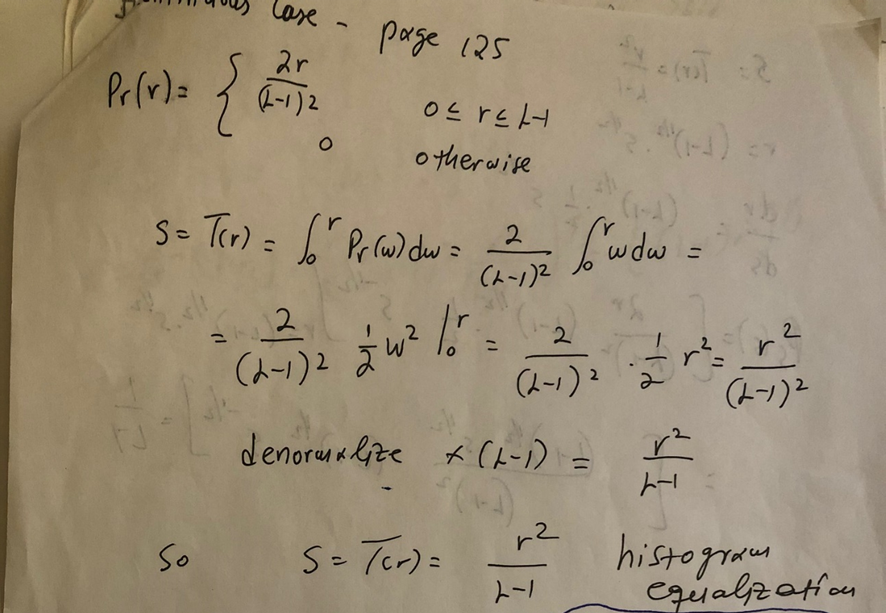 Case - page 125
Pr(r) = { 2r/(L-1)2 0 ≤ r ≤ L-1
0 otherwise
S = T(r) = ∫0r Pr(w)dw = 2/(L-1)2 ∫0r wdw =
= 2/(L-1)2 1/2 w2 |0r = 2/(L-1)2 · 1/2 r2 = r2/(L-1)2
denormalize × (L-1) = r2/L-1
So S = T(r) = r2/L-1 histogram
equalization